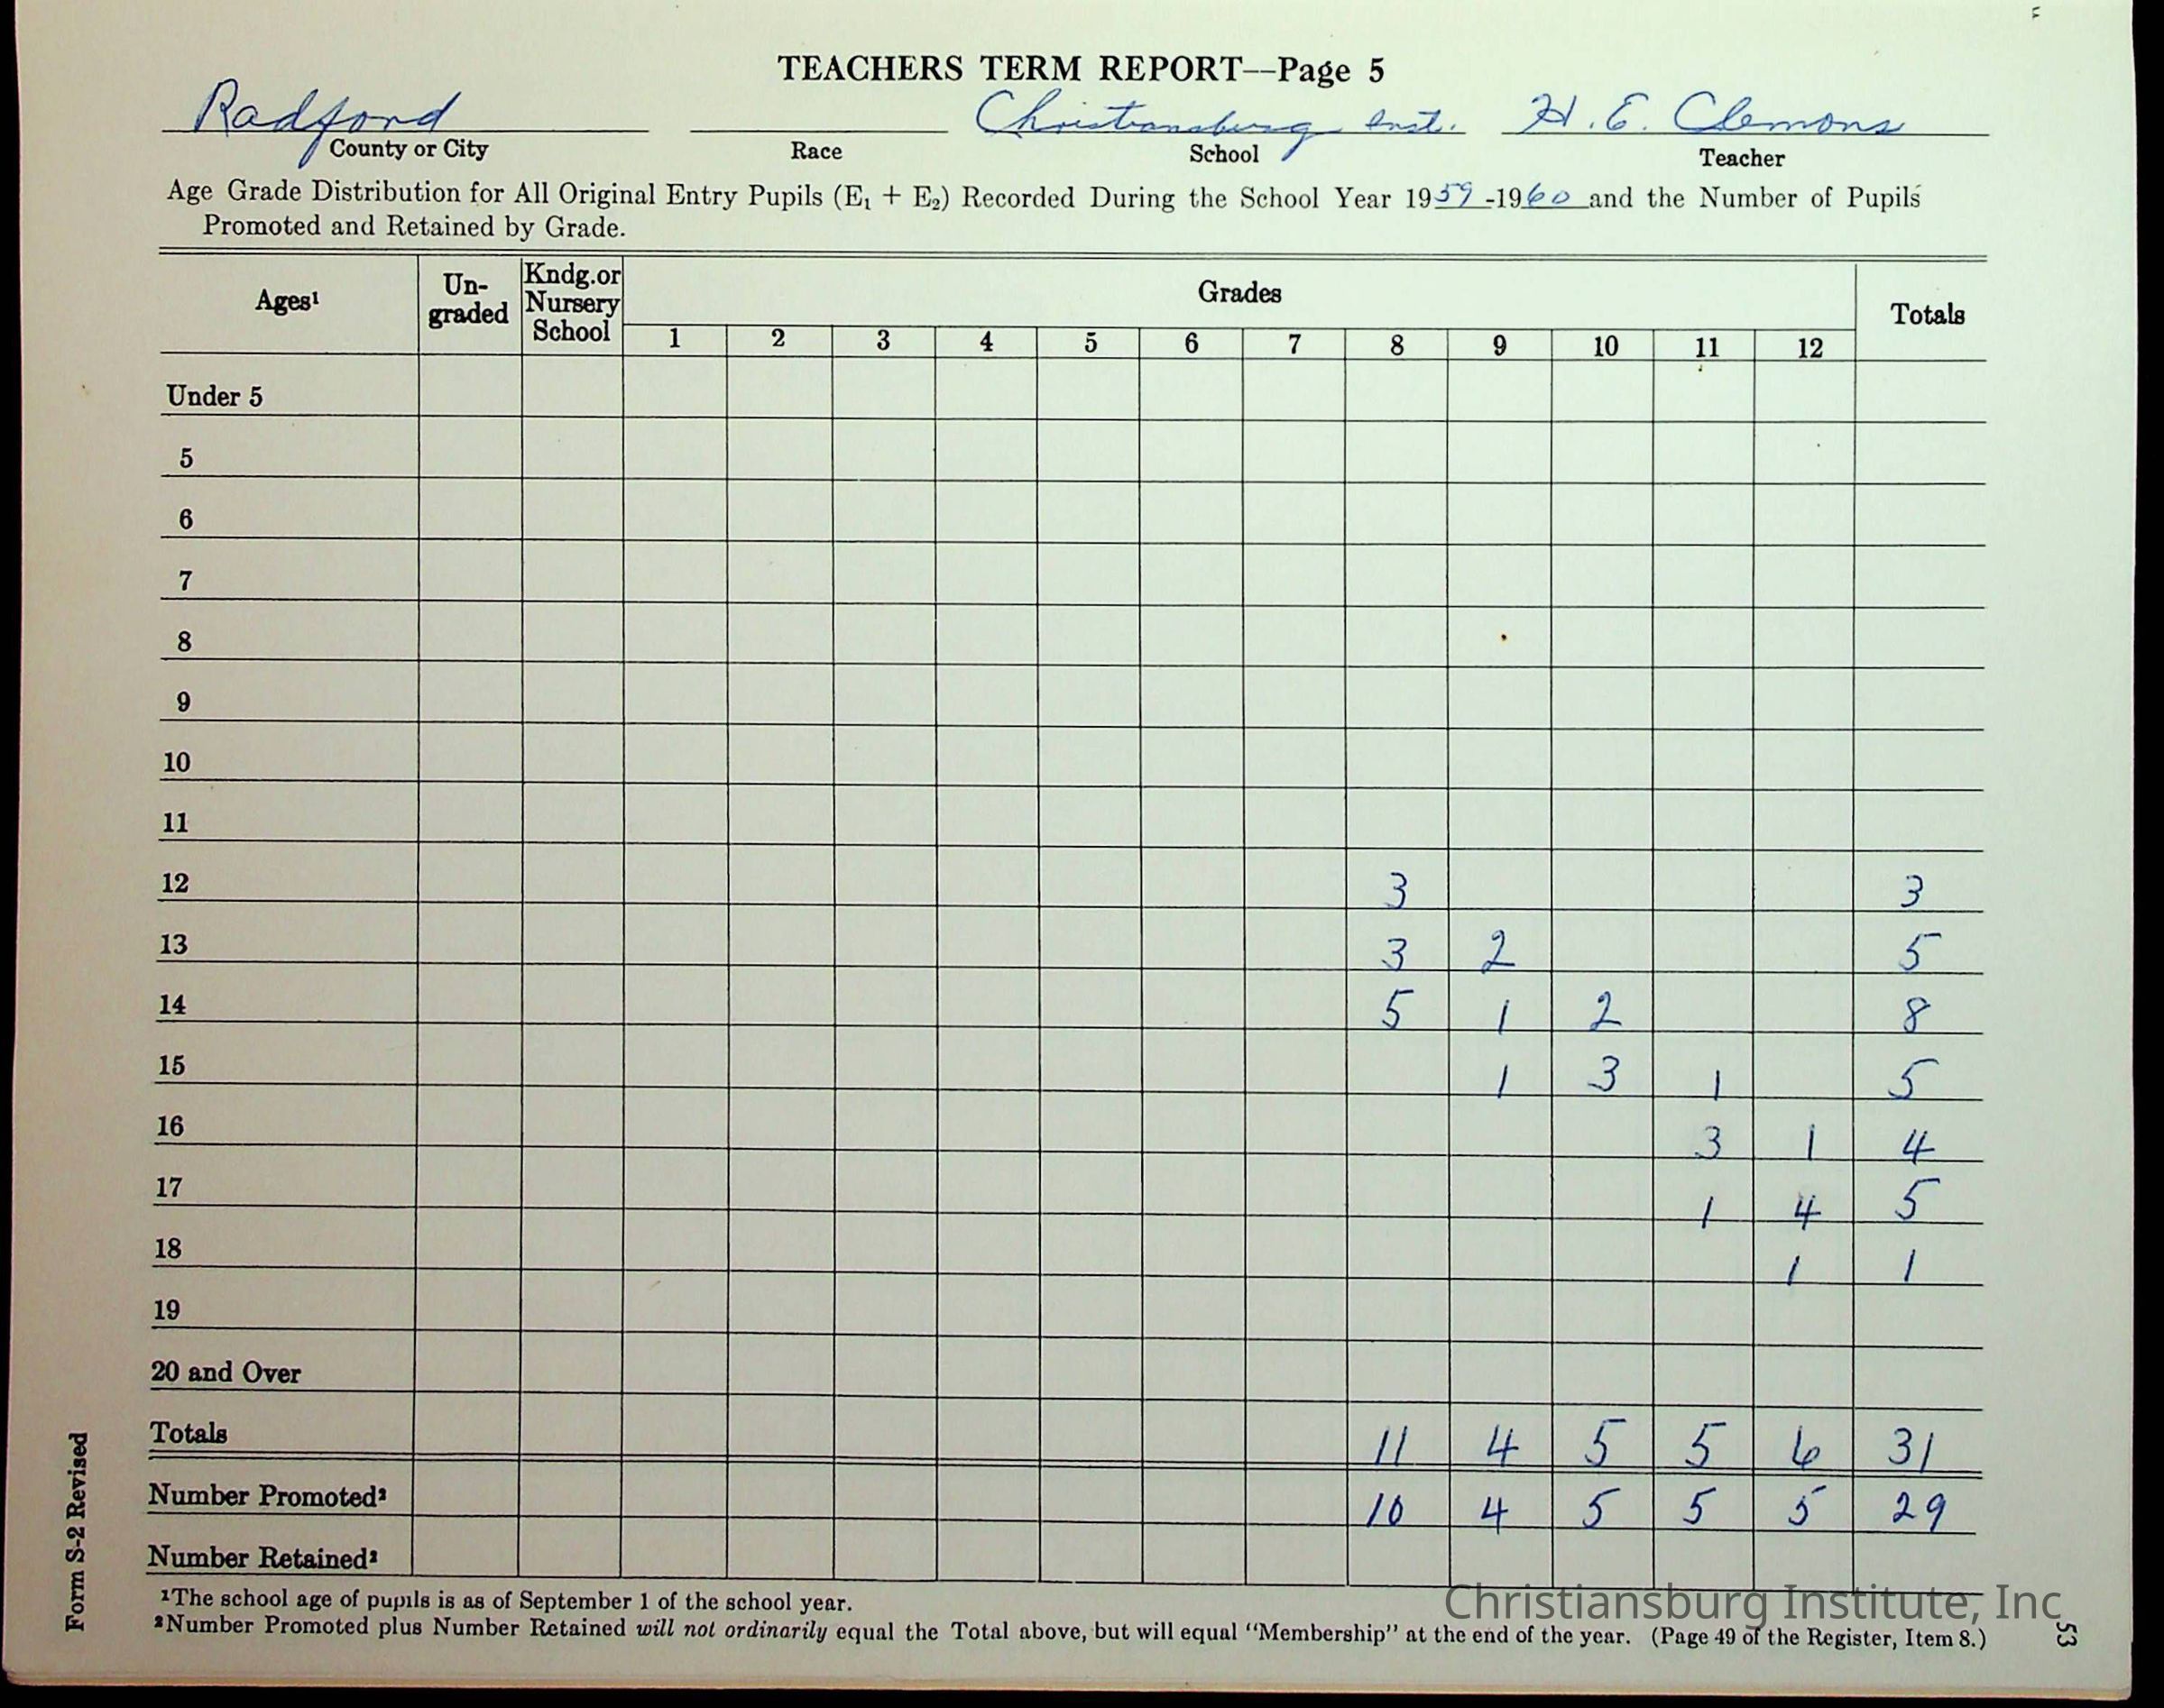 TEACHERS TERM REPORT—Page 5
Radford Christiansburg Inst. H. E. Clemons
County or City Race School Teacher
Age Grade Distribution for All Original Entry Pupils (E₁ + E₂) Recorded During the School Year 1959-1960 and the Number of Pupils
Promoted and Retained by Grade.
Ages¹ Un-graded Kndg.or Nursery School Grades Totals
1 2 3 4 5 6 7 8 9 10 11 12
Under 5
5
6
7
8
9
10
11
12 3 3
13 3 2 5
14 5 1 2 8
15 1 3 1 5
16 3 1 4
17 1 4 5
18 1 1
19
20 and Over
Totals 11 4 5 5 6 31
Number Promoted² 10 4 5 5 5 29
Number Retained²
¹The school age of pupils is as of September 1 of the school year.
²Number Promoted plus Number Retained will not ordinarily equal the Total above, but will equal "Membership" at the end of the year. (Page 49 of the Register, Item 8.)
Form S-2 Revised
Christiansburg Institute, Inc
53